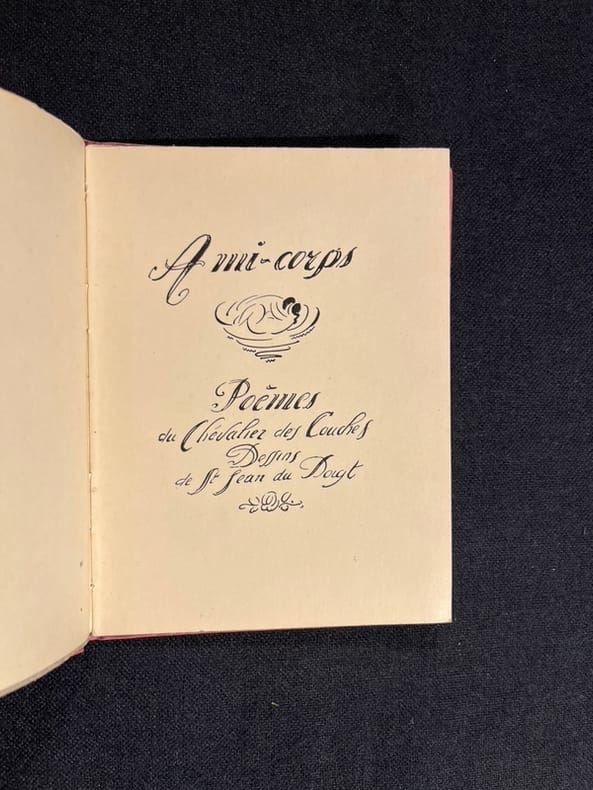 Ami-corps
Poèmes
du Chevalier des Couches
Dessins
de St Jean du Doigt